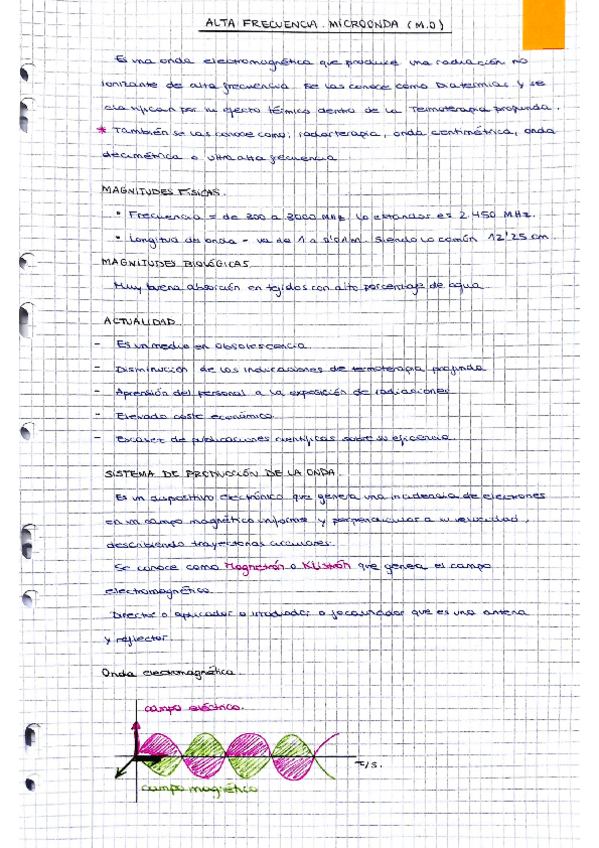 ALTA FRECUENCIA. MICROONDA (M.O)
Es una onda electromagnética que produce una radiación no
ionizante de alta frecuencia. Se las conoce como Diatermias y se
clasifican por su efecto térmico dentro de la Termoterapia profunda.
* También se las conoce como: radarterapia, onda centimétrica, onda
decimétrica o ultra alta frecuencia.
MAGNITUDES FÍSICAS.
• Frecuencia = de 300 a 3000 MHz. Lo estandar es 2.450 MHz.
• Longitud de onda - va de 1 a 0'01m. Siendo lo común 12'25 cm.
MAGNITUDES BIOLÓGICAS.
Muy buena absorción en tejidos con alto porcentaje de agua
ACTUALIDAD.
- Es un medio en obsolescencia.
- Disminución de las indicaciones de termoterapia profunda
- Aprensión del personal a la exposición de radiaciones
- Elevado coste económico.
- Escasez de publicaciones científicas sobre su eficiencia.
SISTEMA DE PRODUCCIÓN DE LA ONDA.
Es un dispositivo electrónico que genera una incidencia de electrones
en un campo magnético uniforme y perpendicular a su velocidad,
describiendo trayectorias circulares.
Se conoce como Magnetrón o Klistrón que genera el campo
electromagnético.
Director o aplicador o irradiador o focalizador que es una antena
y reflector.
Onda electromagnética.
campo eléctrico.
T/s.
campo magnético